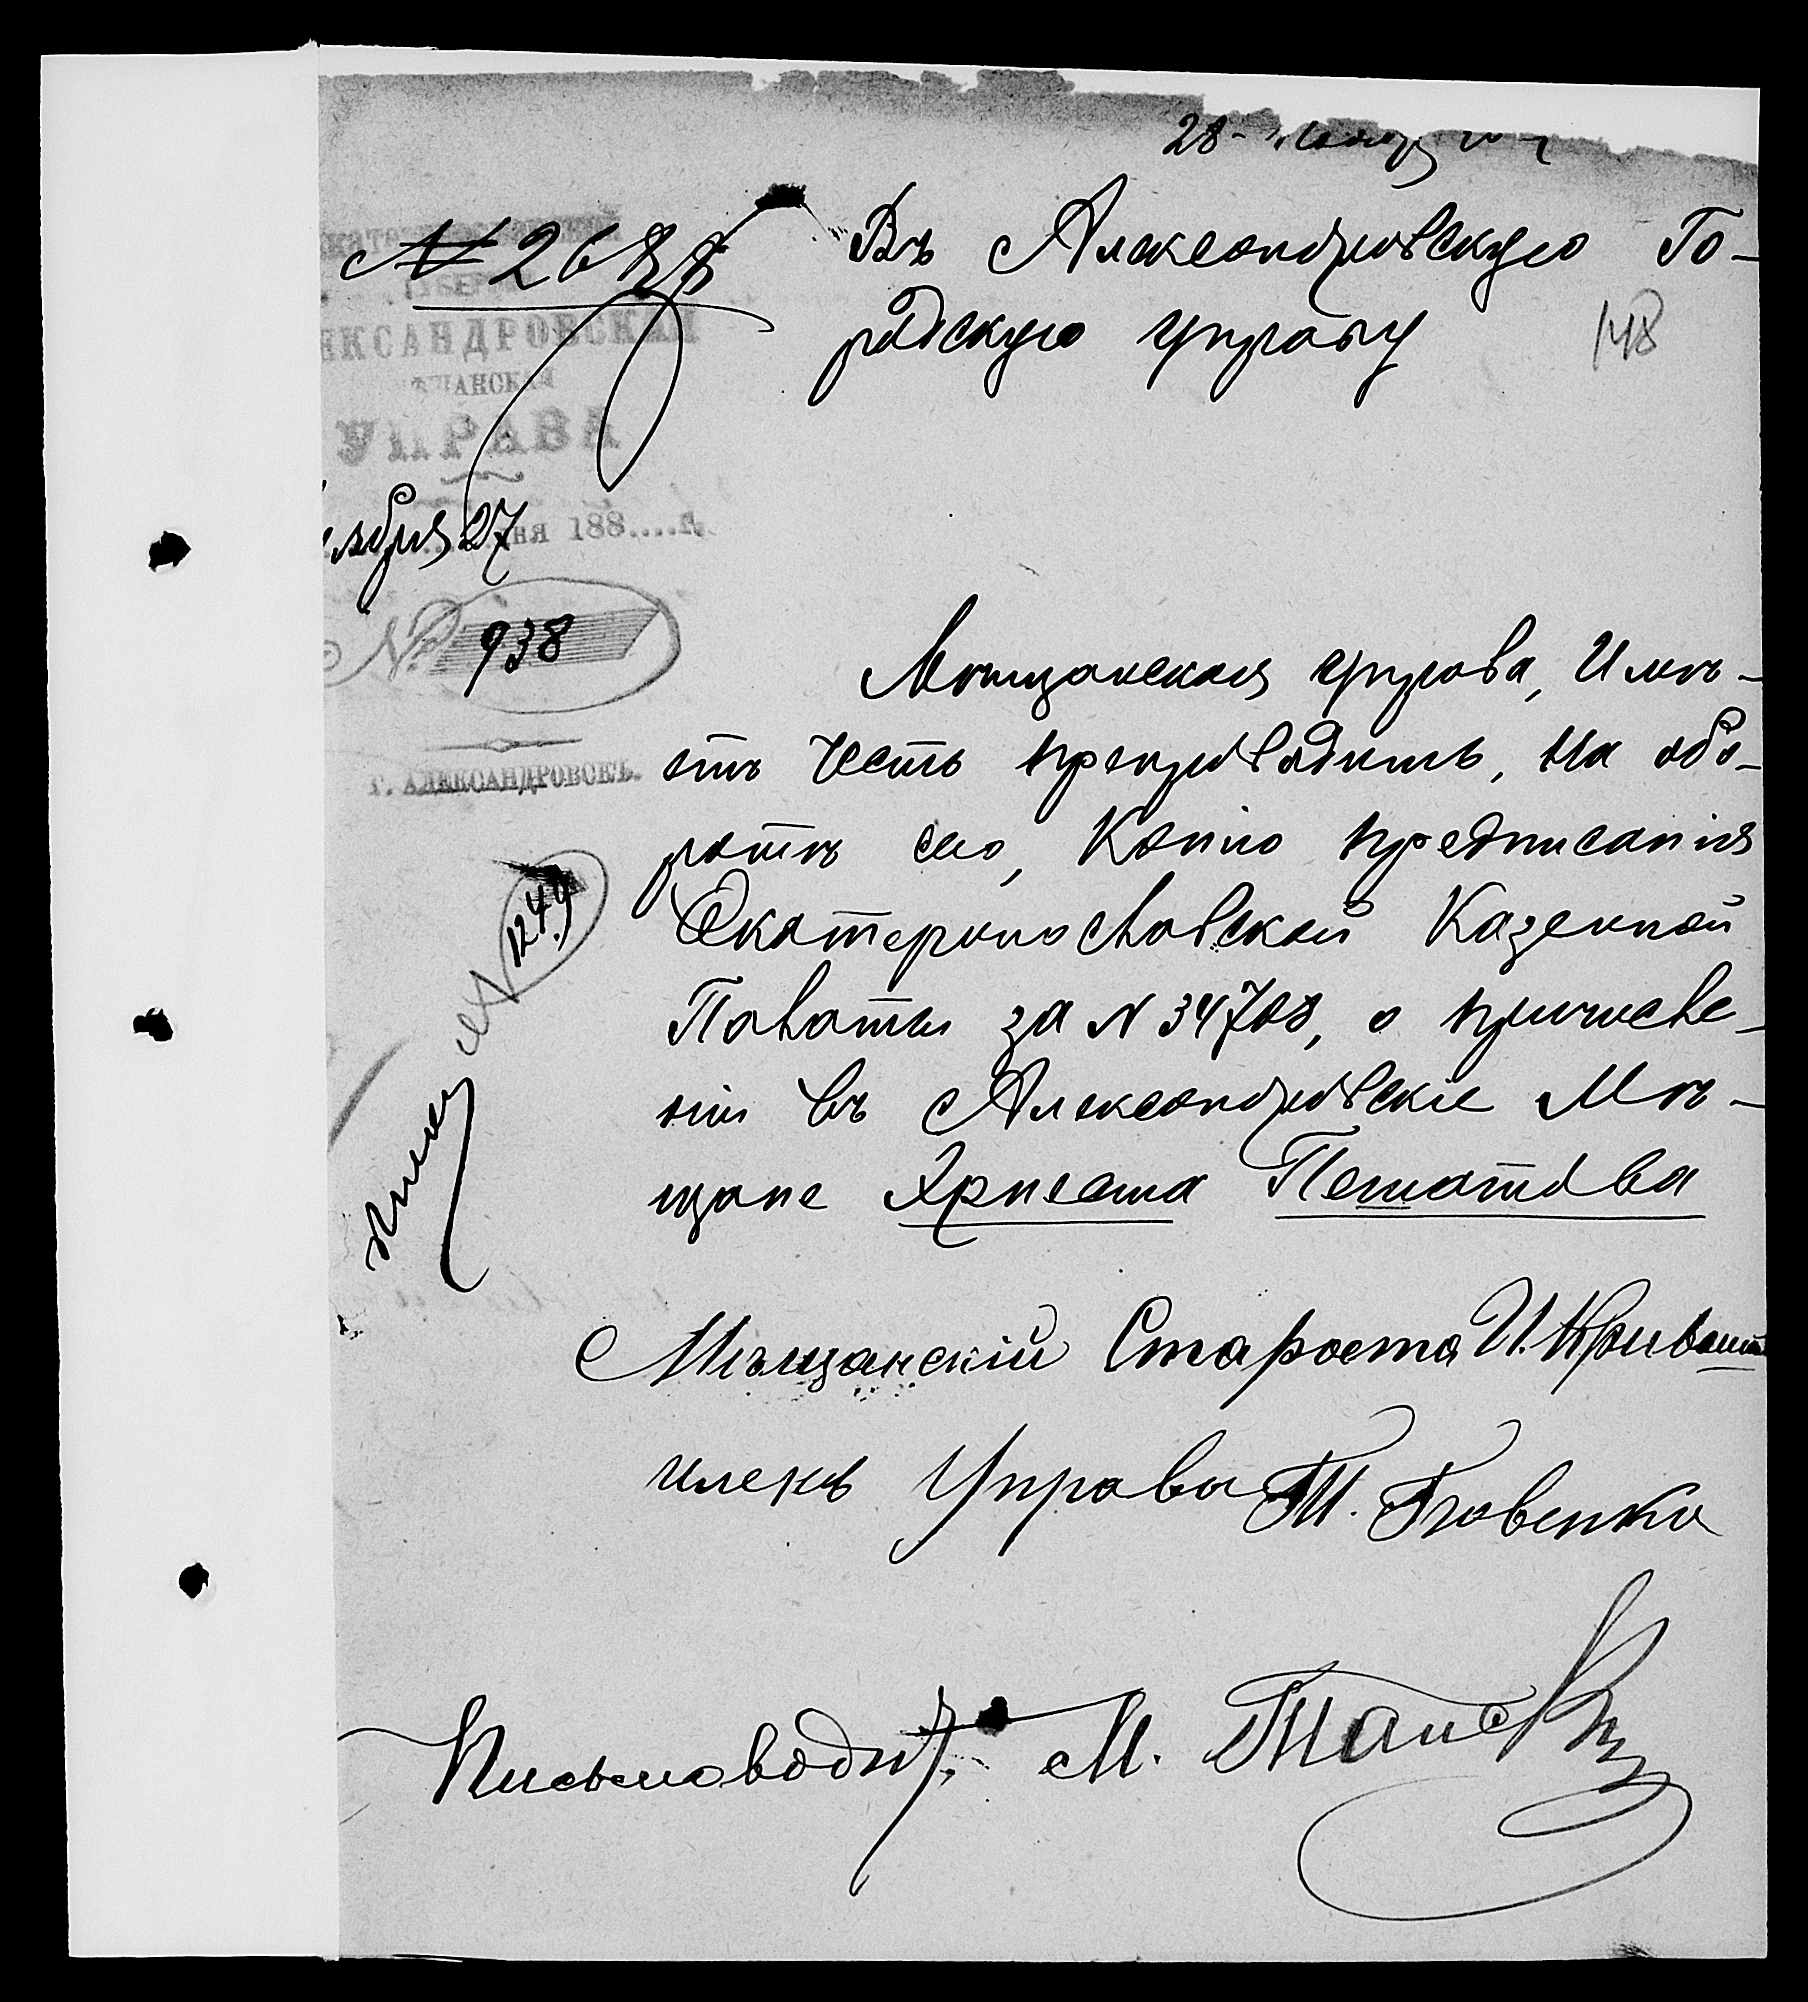 28
№ 2688
Въ Александровскую Го-
родскую управу
148
АЛЕКСАНДРОВСКАЯ
МѢЩАНСКАЯ
УПРАВА
ября 27 дня 188....г.
№ 938
г. АЛЕКСАНДРОВСКЪ.
Мѣщанская управа, Имѣ-
етъ честь препроводить, На обо-
ротѣ сего, Копію предписанія
Екатеринославской Казенной
Палаты за N 34708, о причисле-
ніи въ Александровскіе Мѣ-
щане Христа
№ 1249
Мѣщанскій Староста И.
членъ Управы
Письмоводит. М.